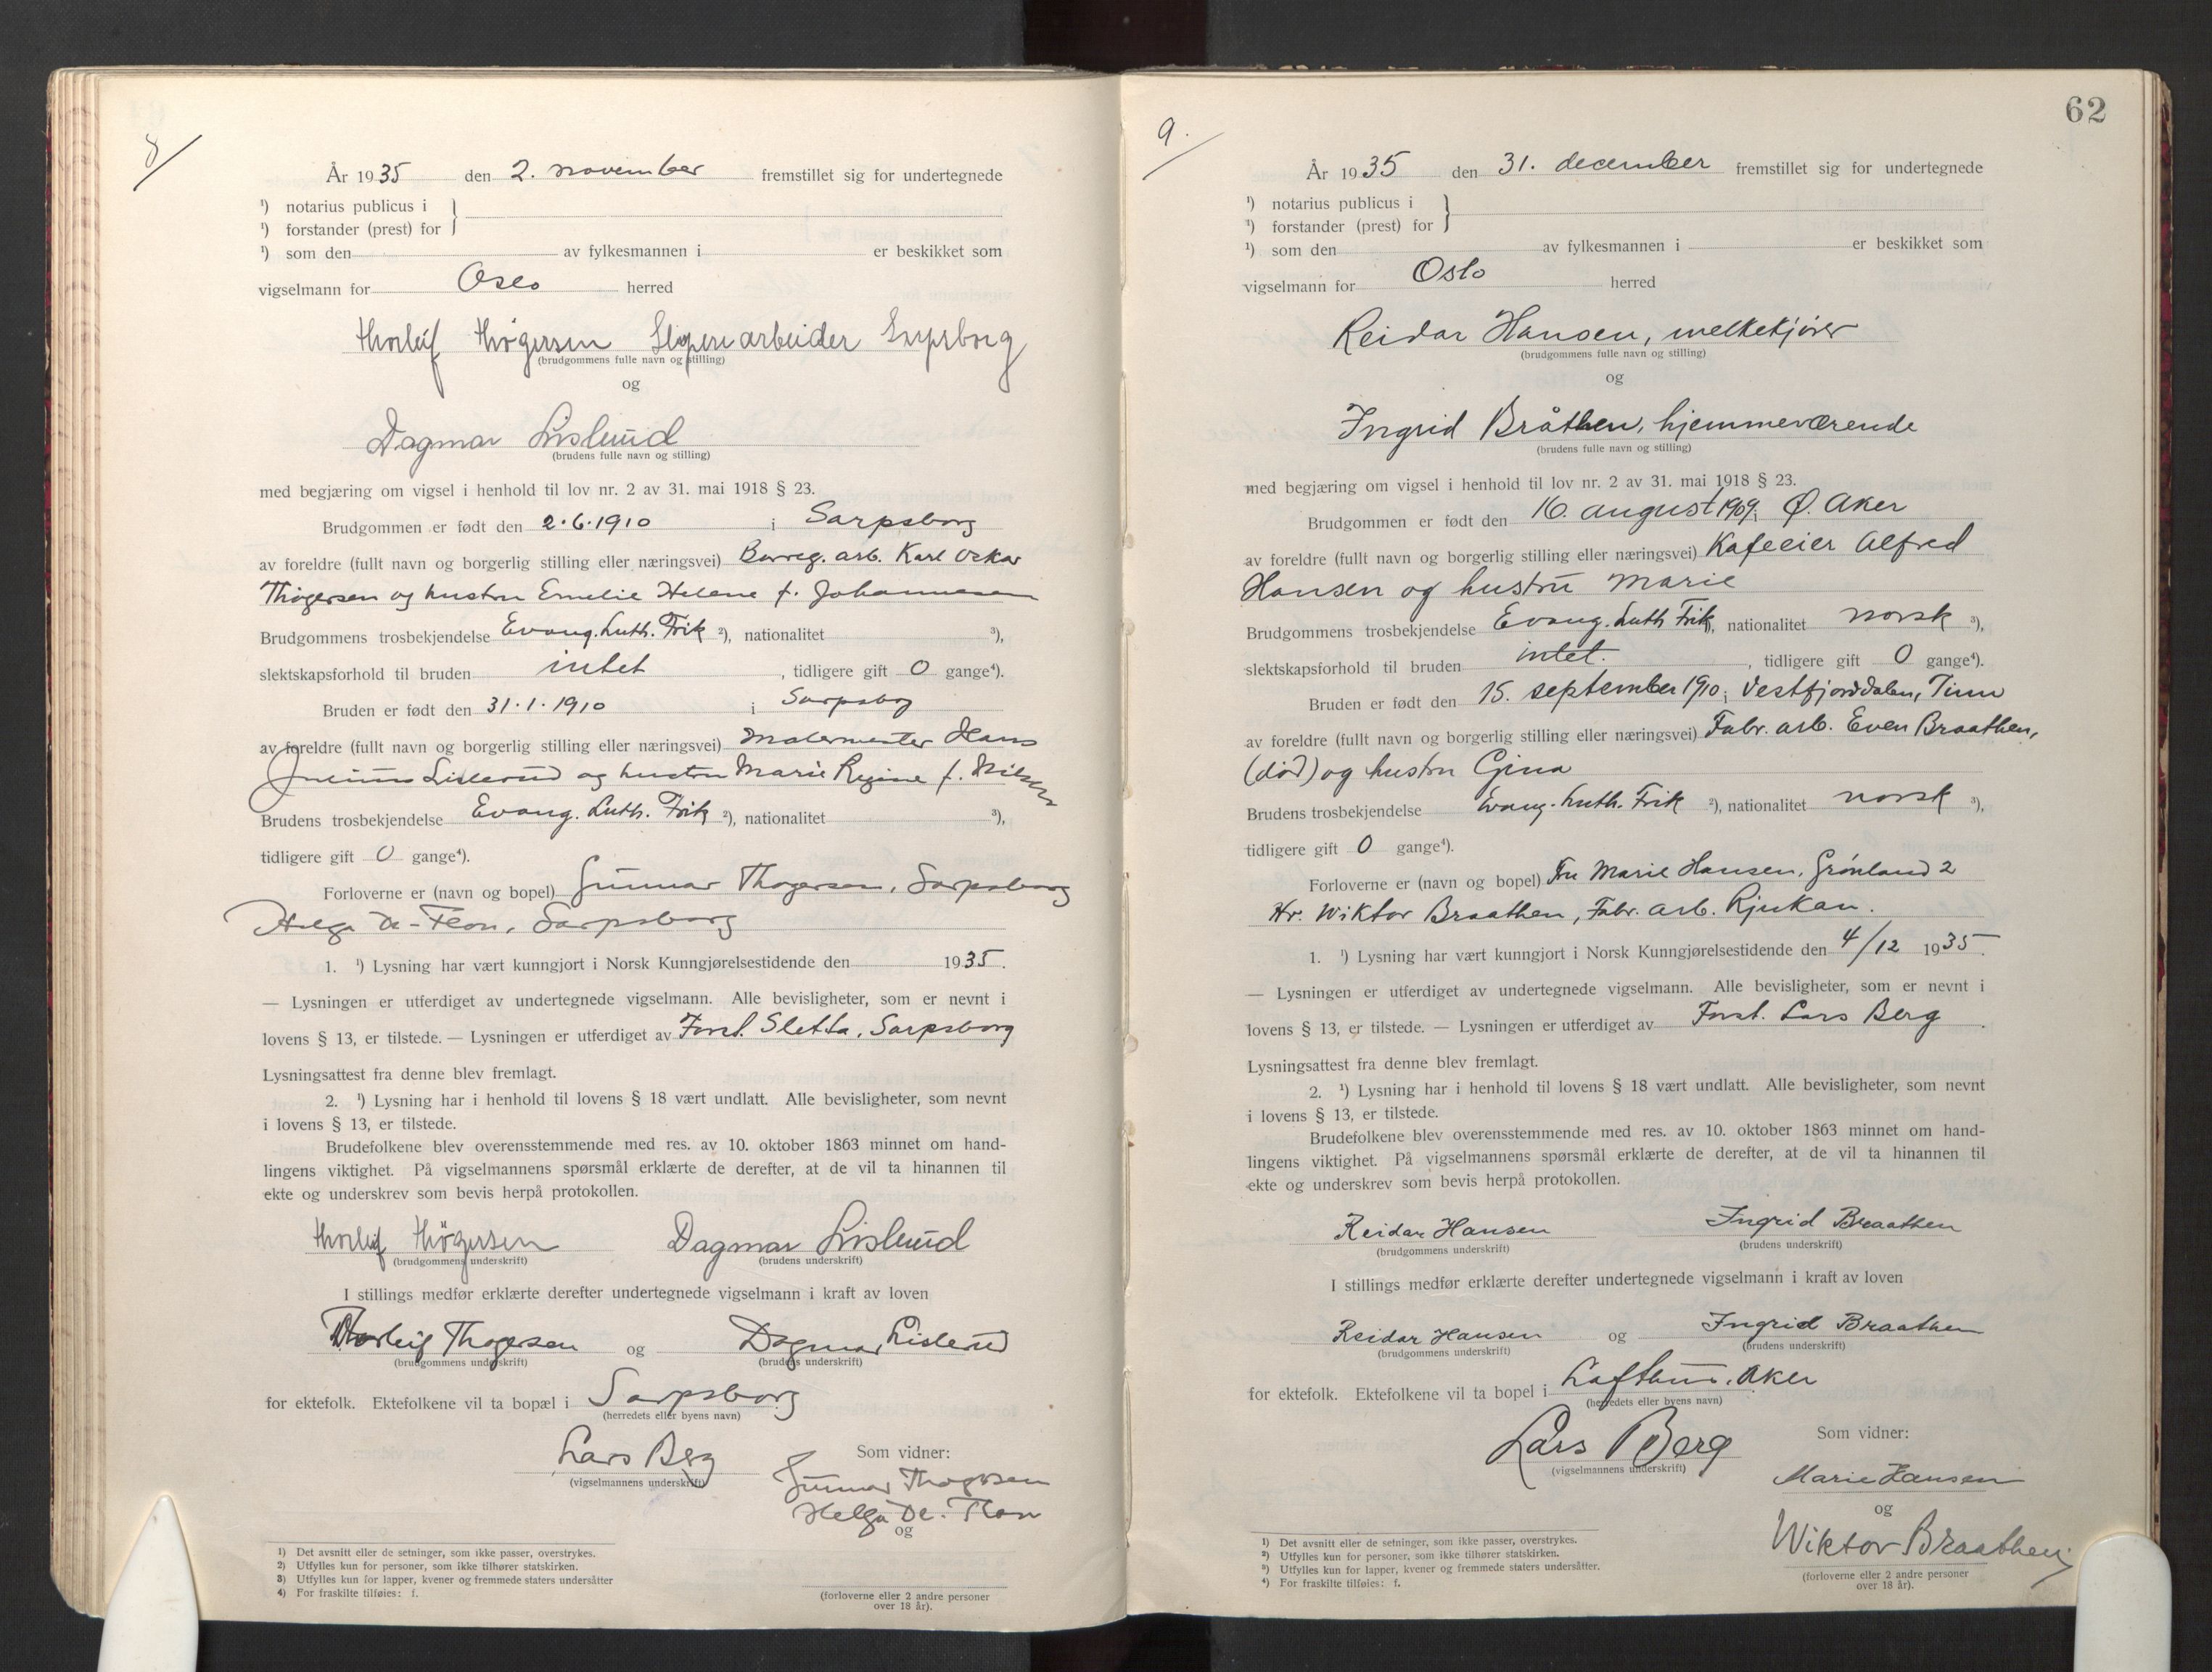 8/
År 1935 den 2. november fremstillet sig for undertegnede
¹) notarius publicus i
¹) forstander (prest) for
¹) som den av fylkesmannen i er beskikket som
vigselmann for Oslo herred
Thorleif Thögersen arbeider Sarpsborg
(brudgommens fulle navn og stilling)
og
Dagmar Lislerud
(brudens fulle navn og stilling)
med begjæring om vigsel i henhold til lov nr. 2 av 31. mai 1918 § 23.
Brudgommen er født den 2.6.1910 i Sarpsborg
av foreldre (fullt navn og borgerlig stilling eller næringsvei) Borreg. arb. Karl Oskar
Thøgersen og hustru Emelie Helene f. Johannesen
Brudgommens trosbekjendelse Evang. Luth. Frik ²), nationalitet ³),
slektskapsforhold til bruden intet , tidligere gift 0 gange⁴).
Bruden er født den 31.1.1910 i Sarpsborg
av foreldre (fullt navn og borgerlig stilling eller næringsvei) Malermester Hans
Julius Lislerud og hustru Marie Regine f. Nilsen
Brudens trosbekjendelse Evang. Luth. Frik ²), nationalitet ³),
tidligere gift 0 gange⁴).
Forloverne er (navn og bopel) Gunnar Thøgersen, Sarpsborg
Helga De-Flon, Sarpsborg
1. ¹) Lysning har vært kunngjort i Norsk Kunngjørelsestidende den 1935.
— Lysningen er utferdiget av undertegnede vigselmann. Alle bevisligheter, som er nevnt i
lovens § 13, er tilstede. — Lysningen er utferdiget av Forst. Sletta, Sarpsborg
Lysningsattest fra denne blev fremlagt.
2. ¹) Lysning har i henhold til lovens § 18 vært undlatt. Alle bevisligheter, som nevnt
i lovens § 13, er tilstede.
Brudefolkene blev overensstemmende med res. av 10. oktober 1863 minnet om hand-
lingens viktighet. På vigselmannens spørsmål erklærte de derefter, at de vil ta hinannen til
ekte og underskrev som bevis herpå protokollen.
Thorleif Thögersen Dagmar Lislerud
(brudgommens underskrift) (brudens underskrift)
I stillings medfør erklærte derefter undertegnede vigselmann i kraft av loven
Thorleif Thøgersen og Dagmar Lislerud
(brudgommens underskrift) (brudens underskrift)
for ektefolk. Ektefolkene vil ta bopæl i Sarpsborg
(herredets eller byens navn)
Lars Berg Som vidner:
(vigselmannens underskrift) Gunnar Thøgersen
Helga De-Flon
og
1) Det avsnitt eller de setninger, som ikke passer, overstrykes.
2) Utfylles kun for personer, som ikke tilhører statskirken.
3) Utfylles kun for lapper, kvener og fremmede staters undersåtter
4) For fraskilte tilføies: f.
(forloverne eller 2 andre personer
over 18 år).
62
9.
År 1935 den 31. december fremstillet sig for undertegnede
¹) notarius publicus i
¹) forstander (prest) for
¹) som den av fylkesmannen i er beskikket som
vigselmann for Oslo herred
Reidar Hansen, melkekjører
(brudgommens fulle navn og stilling)
og
Ingrid Bråthen, hjemmeværende
(brudens fulle navn og stilling)
med begjæring om vigsel i henhold til lov nr. 2 av 31. mai 1918 § 23.
Brudgommen er født den 16. august 1909 i Ø. Aker
av foreldre (fullt navn og borgerlig stilling eller næringsvei) Kafeeier Alfred
Hansen og hustru Marie
Brudgommens trosbekjendelse Evang. Luth Frik ²), nationalitet norsk ³),
slektskapsforhold til bruden intet. , tidligere gift 0 gange⁴).
Bruden er født den 15. september 1910 i Vestfjorddalen, Tinn
av foreldre (fullt navn og borgerlig stilling eller næringsvei) Fabr. arb. Even Braathen,
(død) og hustru Gina
Brudens trosbekjendelse Evang. Luth. Frik ²), nationalitet norsk ³),
tidligere gift 0 gange⁴).
Forloverne er (navn og bopel) Fru Marie Hansen, Grønland 2
Hr. Wiktor Braathen, Fabr. arb. Rjukan.
1. ¹) Lysning har vært kunngjort i Norsk Kunngjørelsestidende den 4/12 1935.
— Lysningen er utferdiget av undertegnede vigselmann. Alle bevisligheter, som er nevnt i
lovens § 13, er tilstede. — Lysningen er utferdiget av Forst. Lars Berg .
Lysningsattest fra denne blev fremlagt.
2. ¹) Lysning har i henhold til lovens § 18 vært undlatt. Alle bevisligheter, som nevnt
i lovens § 13, er tilstede.
Brudefolkene blev overensstemmende med res. av 10. oktober 1863 minnet om hand-
lingens viktighet. På vigselmannens spørsmål erklærte de derefter, at de vil ta hinannen til
ekte og underskrev som bevis herpå protokollen.
Reidar Hansen Ingrid Braathen
(brudgommens underskrift) (brudens underskrift)
I stillings medfør erklærte derefter undertegnede vigselmann i kraft av loven
Reidar Hansen og Ingrid Braathen
(brudgommens underskrift) (brudens underskrift)
for ektefolk. Ektefolkene vil ta bopel i Lofthus, Aker
(herredets eller byens navn)
Lars Berg Som vidner:
(vigselmannens underskrift) Marie Hansen
og
Wiktor Braathen
1) Det avsnitt eller de setninger, som ikke passer, overstrykes.
²) Utfylles kun for personer, som ikke tilhører statskirken.
³) Utfylles kun for lapper, kvener og fremmede staters undersåtter.
⁴) For fraskilte tilføies: f.
(forloverne eller 2 andre personer
over 18 år).